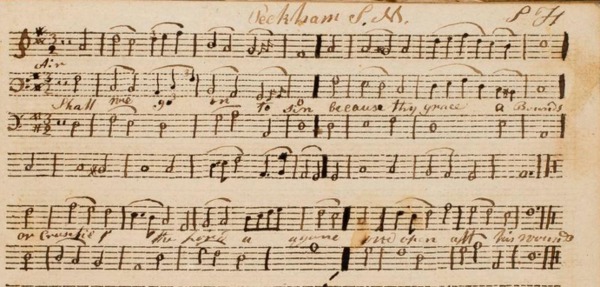 Peckham S. M. P H
Air
Shall we go on to sin because thy grace a Bounds
or Crusifie the Lord a again and open all his wounds